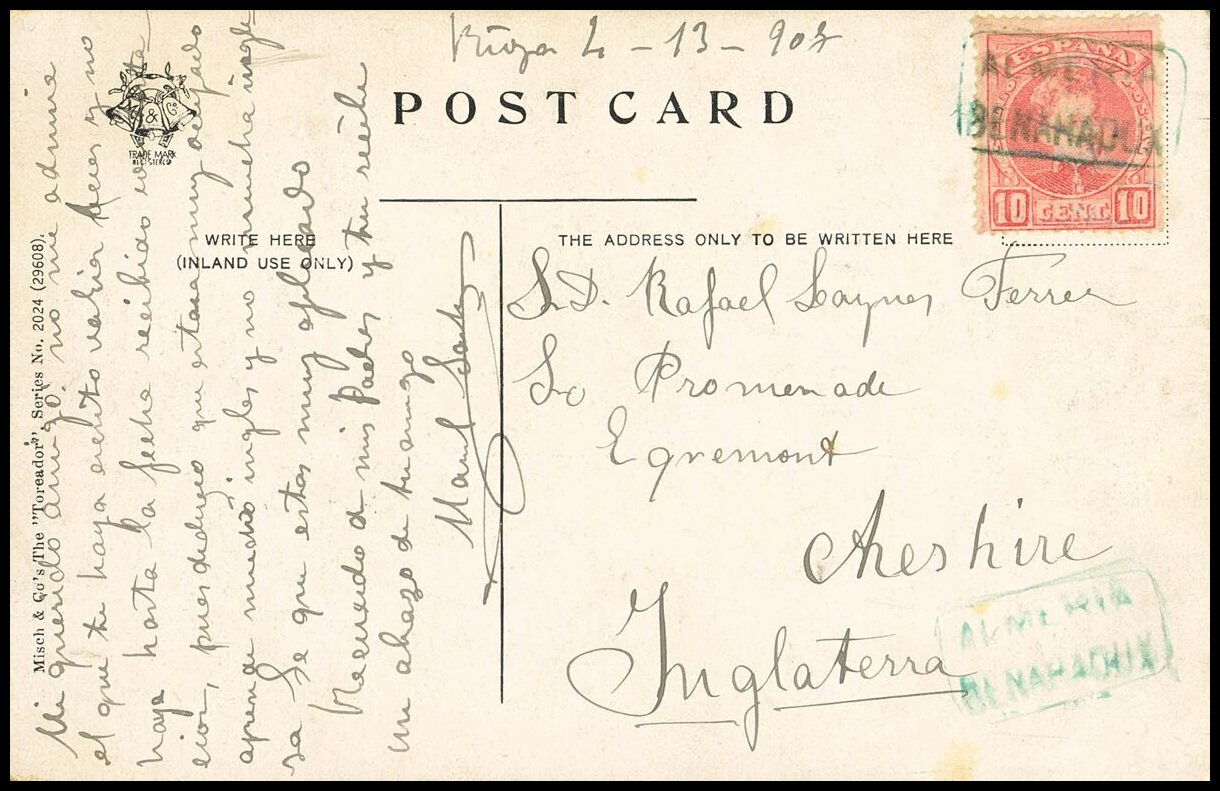 Rioja 4 - 13 - 903
POST CARD
M & Co
TRADE MARK
REGISTERED
ESPAÑA
10 CENT. 10
ALMERIA
BENAHADUX
WRITE HERE
(INLAND USE ONLY)
THE ADDRESS ONLY TO BE WRITTEN HERE
Misch & Co's The "Toreador" Series No. 2024 (29608).
Mi querido amigo: no me admira
el que te haya escrito varias veces y no
haya hasta la fecha recibido
pues que estaras muy ocupado
ingles y no mucha ingle
sa Se que estas muy aplicado
Recuerdo a mis Padres y tu recibe
un abrazo de tu amigo
Manuel
S. D. Rafael Laynez Ferrer
Promenade
Egremont
Cheshire
Inglaterra
ALMERIA
BENAHADUX